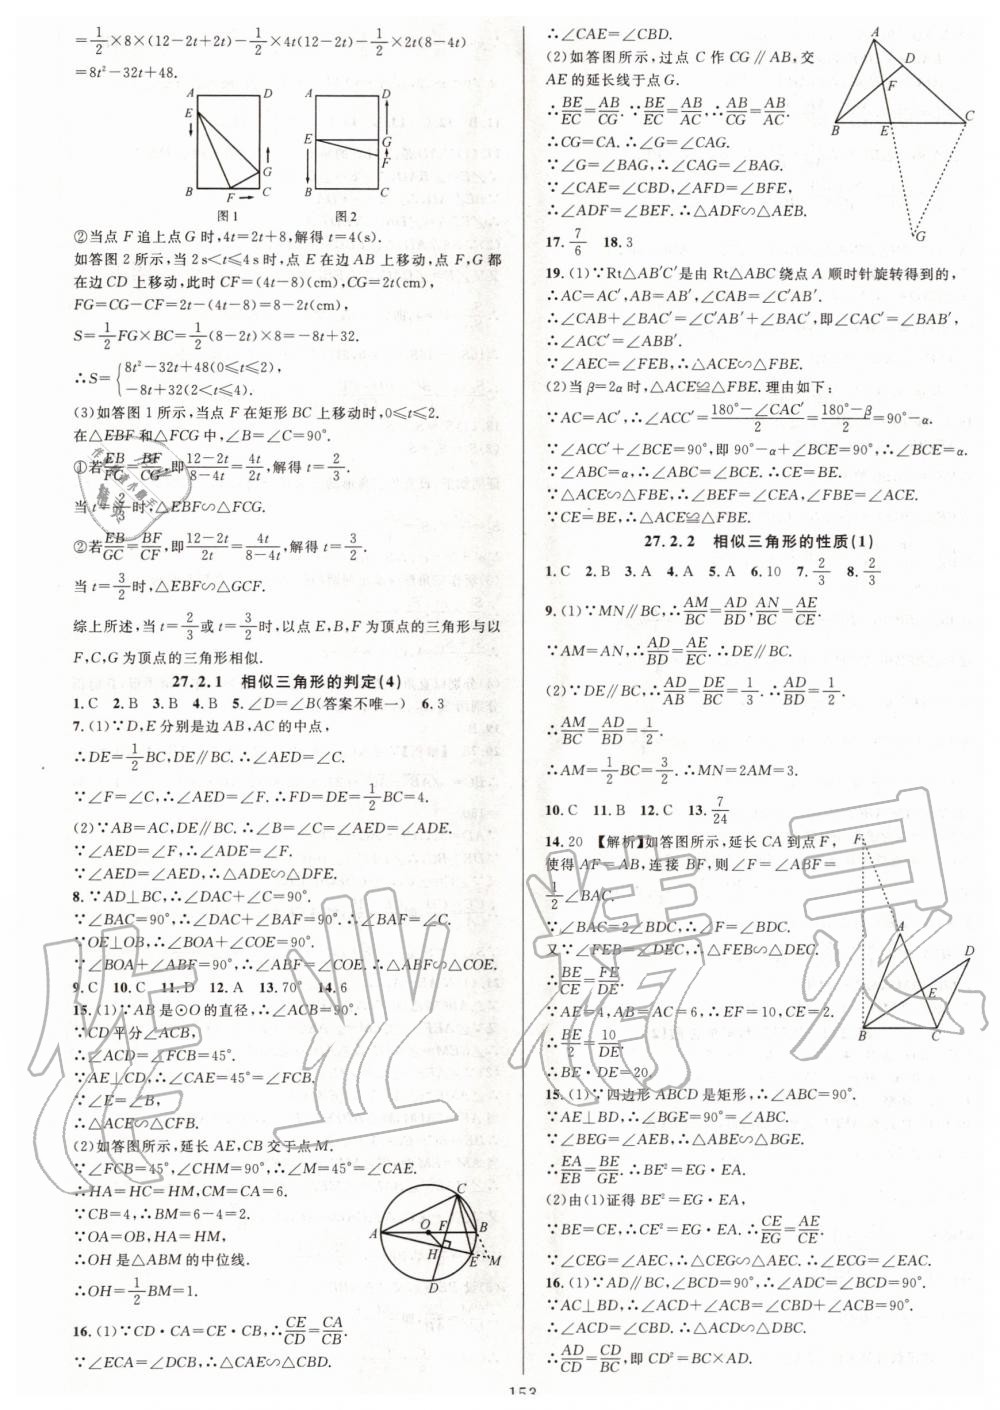 =1/2×8×(12−2t+2t)−1/2×4t(12−2t)−1/2×2t(8−4t)
=8t²−32t+48.
A D E G B F C
图1
A D E G F B C
图2
②当点 F 追上点 G 时,4t=2t+8,解得 t=4(s).
如答图 2 所示,当 2 s<t≤4 s 时,点 E 在边 AB 上移动,点 F,G 都
在边 CD 上移动,此时 CF=(4t−8)(cm),CG=2t(cm),
FG=CG−CF=2t−(4t−8)=8−2t(cm),
S=1/2FG×BC=1/2(8−2t)×8=−8t+32.
∴S={8t²−32t+48(0≤t≤2),
−8t+32(2<t≤4).
(3)如答图 1 所示,当点 F 在矩形 BC 上移动时,0≤t≤2.
在△EBF 和△FCG 中,∠B=∠C=90°.
①若EB/FC=BF/CG,即(12−2t)/(8−4t)=4t/2t,解得 t=2/3.
当 t=2/3时,△EBF∽△FCG.
②若EB/GC=BF/CF,即(12−2t)/2t=4t/(8−4t),解得 t=3/2.
当 t=3/2时,△EBF∽△GCF.
综上所述,当 t=2/3或 t=3/2时,以点 E,B,F 为顶点的三角形与以
F,C,G 为顶点的三角形相似.
27.2.1 相似三角形的判定(4)
1.C 2.B 3.B 4.B 5.∠D=∠B(答案不唯一) 6.3
7.(1)∵D,E 分别是边 AB,AC 的中点,
∴DE=1/2BC,DE∥BC.∴∠AED=∠C.
∵∠F=∠C,∴∠AED=∠F.∴FD=DE=1/2BC=4.
(2)∵AB=AC,DE∥BC.∴∠B=∠C=∠AED=∠ADE.
∵∠AED=∠F,∴∠ADE=∠F.
∵∠AED=∠AED,∴△ADE∽△DFE.
8.∵AD⊥BC,∴∠DAC+∠C=90°.
∵∠BAC=90°,∴∠DAC+∠BAF=90°.∴∠BAF=∠C.
∵OE⊥OB,∴∠BOA+∠COE=90°.
∵∠BOA+∠ABF=90°,∴∠ABF=∠COE.∴△ABF∽△COE.
9.C 10.C 11.D 12.A 13.70° 14.6
15.(1)∵AB 是⊙O 的直径,∴∠ACB=90°.
∵CD 平分∠ACB,
∴∠ACD=∠FCB=45°.
∵AE⊥CD,∴∠CAE=45°=∠FCB.
∵∠E=∠B,
∴△ACE∽△CFB.
(2)如答图所示,延长 AE,CB 交于点 M.
∵∠FCB=45°,∠CHM=90°,∴∠M=45°=∠CAE.
∴HA=HC=HM,CM=CA=6.
∵CB=4,∴BM=6−4=2.
∵OA=OB,HA=HM,
∴OH 是△ABM 的中位线.
∴OH=1/2BM=1.
A C O F B H E M D
16.(1)∵CD·CA=CE·CB,∴CE/CD=CA/CB.
∵∠ECA=∠DCB,∴△CAE∽△CBD.
∴∠CAE=∠CBD.
(2)如答图所示,过点 C 作 CG∥AB,交
AE 的延长线于点 G.
∴BE/EC=AB/CG.∵BE/EC=AB/AC,∴AB/CG=AB/AC.
∴CG=CA.∴∠G=∠CAG.
∵∠G=∠BAG,∴∠CAG=∠BAG.
∵∠CAE=∠CBD,∠AFD=∠BFE,
∴∠ADF=∠BEF.∴△ADF∽△AEB.
A D F B E C G
17.7/6 18.3
19.(1)∵Rt△AB′C′是由 Rt△ABC 绕点 A 顺时针旋转得到的,
∴AC=AC′,AB=AB′,∠CAB=∠C′AB′.
∴∠CAB+∠BAC′=∠C′AB′+∠BAC′,即∠CAC′=∠BAB′,
∴∠ACC′=∠ABB′.
∵∠AEC=∠FEB,∴△ACE∽△FBE.
(2)当 β=2α 时,△ACE≌△FBE.理由如下:
∵AC=AC′,∴∠ACC′=(180°−∠CAC′)/2=(180°−β)/2=90°−α.
∵∠ACC′+∠BCE=90°,即 90°−α+∠BCE=90°,∴∠BCE=α.
∵∠ABC=α,∴∠ABC=∠BCE.∴CE=BE.
∵△ACE∽△FBE,∴∠BEF=∠CEA,∠FBE=∠ACE.
∵CE=BE,∴△ACE≌△FBE.
27.2.2 相似三角形的性质(1)
1.C 2.B 3.A 4.A 5.A 6.10 7.2/3 8.2/3
9.(1)∵MN∥BC,∴AM/BC=AD/BD,AN/BC=AE/CE.
∵AM=AN,∴AD/BD=AE/EC.∴DE∥BC.
(2)∵DE∥BC,∴AD/AB=DE/BC=1/3.∴AD/BD=1/2.
∴AM/BC=AD/BD=1/2.
∴AM=1/2BC=3/2.∴MN=2AM=3.
10.C 11.B 12.C 13.7/24
14.20 【解析】如答图所示,延长 CA 到点 F,
使得 AF=AB,连接 BF,则∠F=∠ABF=
1/2∠BAC.
∵∠BAC=2∠BDC,∴∠F=∠BDC.
又∵∠FEB=∠DEC,∴△FEB∽△DEC.
∴BE/CE=FE/DE.
∵AE=4,AB=AC=6,∴EF=10,CE=2.
∴BE/2=10/DE.
∴BE·DE=20.
F A D E B C
15.(1)∵四边形 ABCD 是矩形,∴∠ABC=90°.
∵AE⊥BD,∴∠BGE=90°=∠ABC.
∵∠BEG=∠AEB,∴△ABE∽△BGE.
∴EA/EB=BE/GE.∴BE²=EG·EA.
(2)由(1)证得 BE²=EG·EA,
∵BE=CE,∴CE²=EG·EA.∴CE/EG=AE/CE.
∵∠CEG=∠AEC,∴△CEG∽△AEC.∴∠ECG=∠EAC.
16.(1)∵AD∥BC,∠BCD=90°,∴∠ADC=∠BCD=90°.
∵AC⊥BD,∴∠ACD+∠ACB=∠CBD+∠ACB=90°.
∴∠ACD=∠CBD.∴△ACD∽△DBC.
∴AD/CD=CD/BC,即 CD²=BC×AD.
153
作业精灵